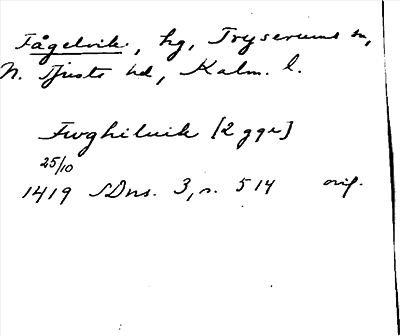 Fågelvik, hg, Tryserums sn,
N. Tjusts hd, Kalm. l.
Fwghiluik [2 ggr]
25/10
1419 SDns. 3, s. 514 orig.